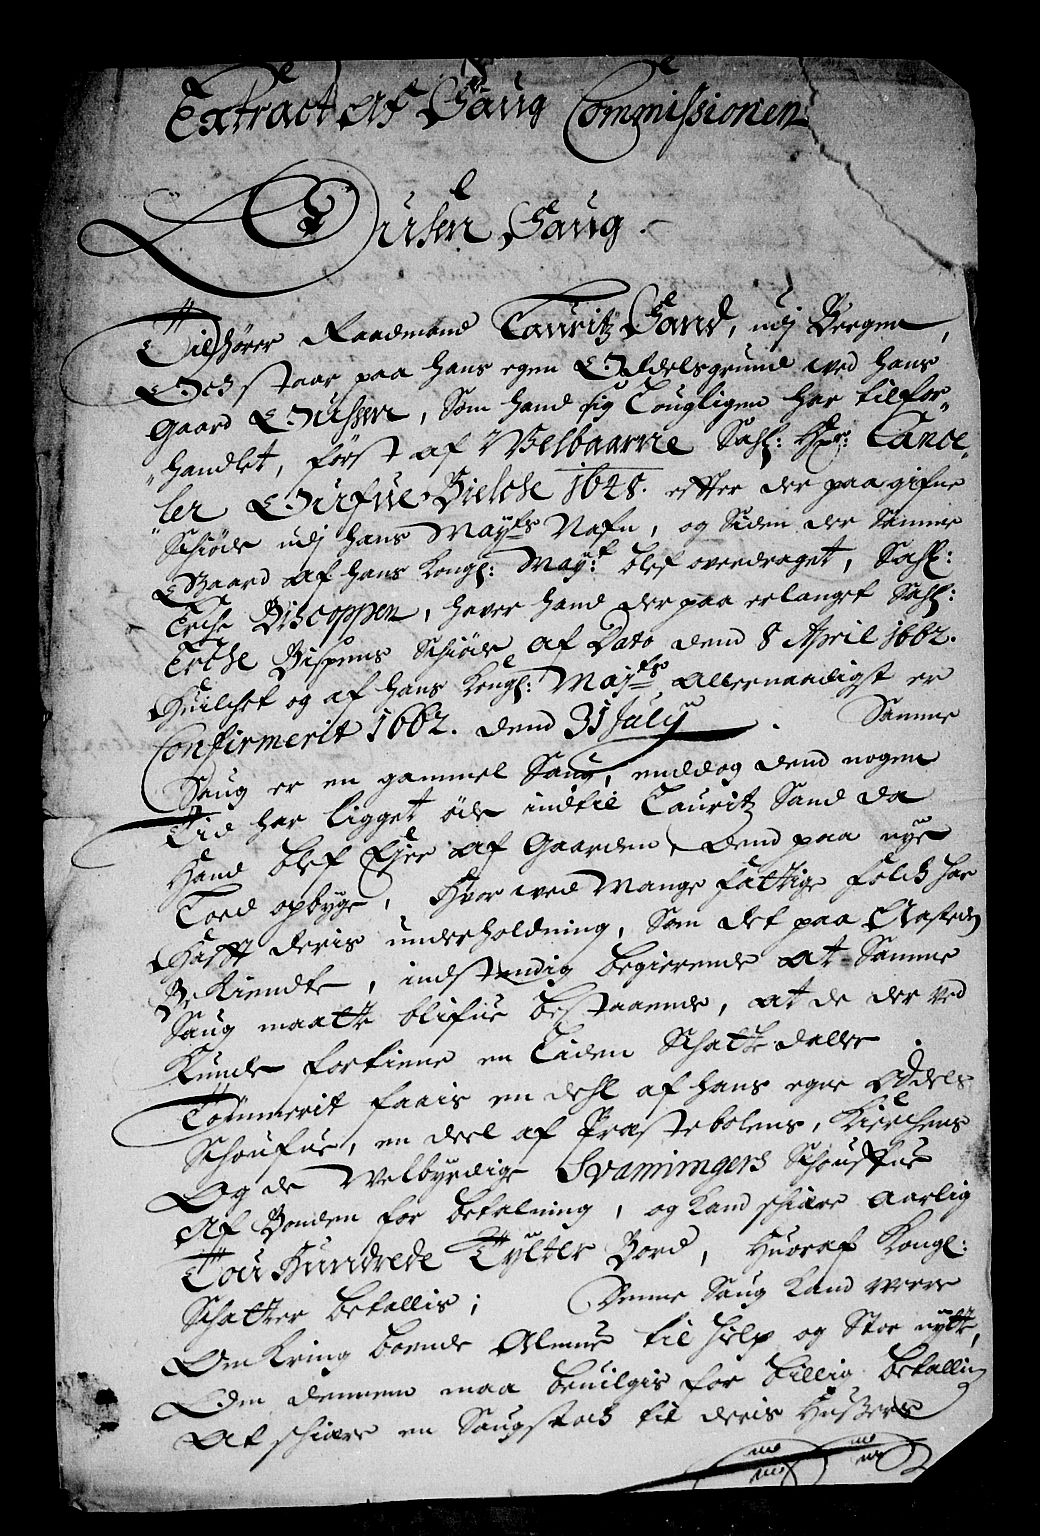 Extract Af Saug Commissionen
Ousen Saug
Tilhører Raadmand Lauritz Sand, udj Bergen,
Och staar paa hans egen Odelsgrund wed hans
Gaard Ousen, Som hand sig Lougligen har tilfor¬
handlet, først af Welbaarne Sahl: Hr: Cance¬
ler Oufue Bielche 1648. effter der paa gifne
Schiøde udj hans Maytz Nafn, og Siden der Samme
Gaard af hans Kongl: Mayt: blef overdraget, Sahl:
Erche Biscoppen, hafer hand der paa erlanget Sahl:
Erche Bispens Schiøde af Dato dend 8 April 1662.
Huilchet og af hans Kongl: Maytz allernaadigst er
Confirmerit 1662. dend 31 July. Samme
Saug er en gammel Saug, enddog dend nogen
Tid har ligget øde indtil Lauritz Sand da
Hand blef Ejer af Gaarden, dend paa nye
Loed opbyge, Hvor wed Mange fattige folch har
Hafft deris underholdning, Som det paa Aasteden
Be Kiendte, indstendig begierende at Samme
Saug maatte blifue bestaaende, at de der ved
Kunde fortiene en Liden Schatte daller.
Tømmerit faais en dehl af hans egne Oddels
Schoufue, en deel af Præstebolens, Kierchens
Og de Welbyrdige Svaningers Schouffue
Af Bonden for betalning, og Kand schiære Aarlig
Tou Hundrede Tylter Bord, Huoraf Kongl:
Schatter betallis; Denne Saug Kand were
Om Kring boende Almue til hielp og Stor nytte,
Om dennem maa beuilgis for billig betalling
At schiære en Saugstoch til deris Hussers